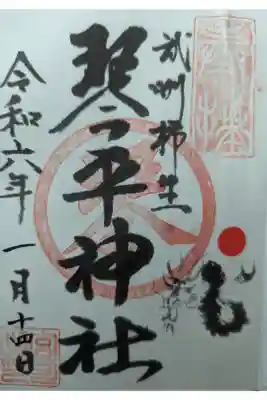 武州柿生
琴平神社
令和六年一月十四日